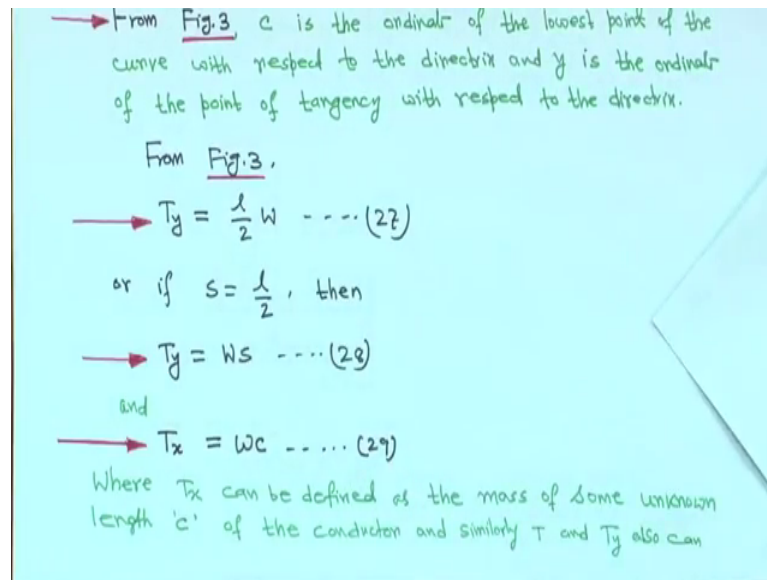 From Fig.3, c is the ordinate of the lowest point of the
curve with respect to the directrix and y is the ordinate
of the point of tangency with respect to the directrix.
From Fig.3.
Ty = l/2 W ---- (27)
or if s = l/2, then
Ty = Ws ---- (28)
and
Tx = Wc ----- (29)
Where Tx can be defined as the mass of some unknown
length 'c' of the conductor and similarly T and Ty also can